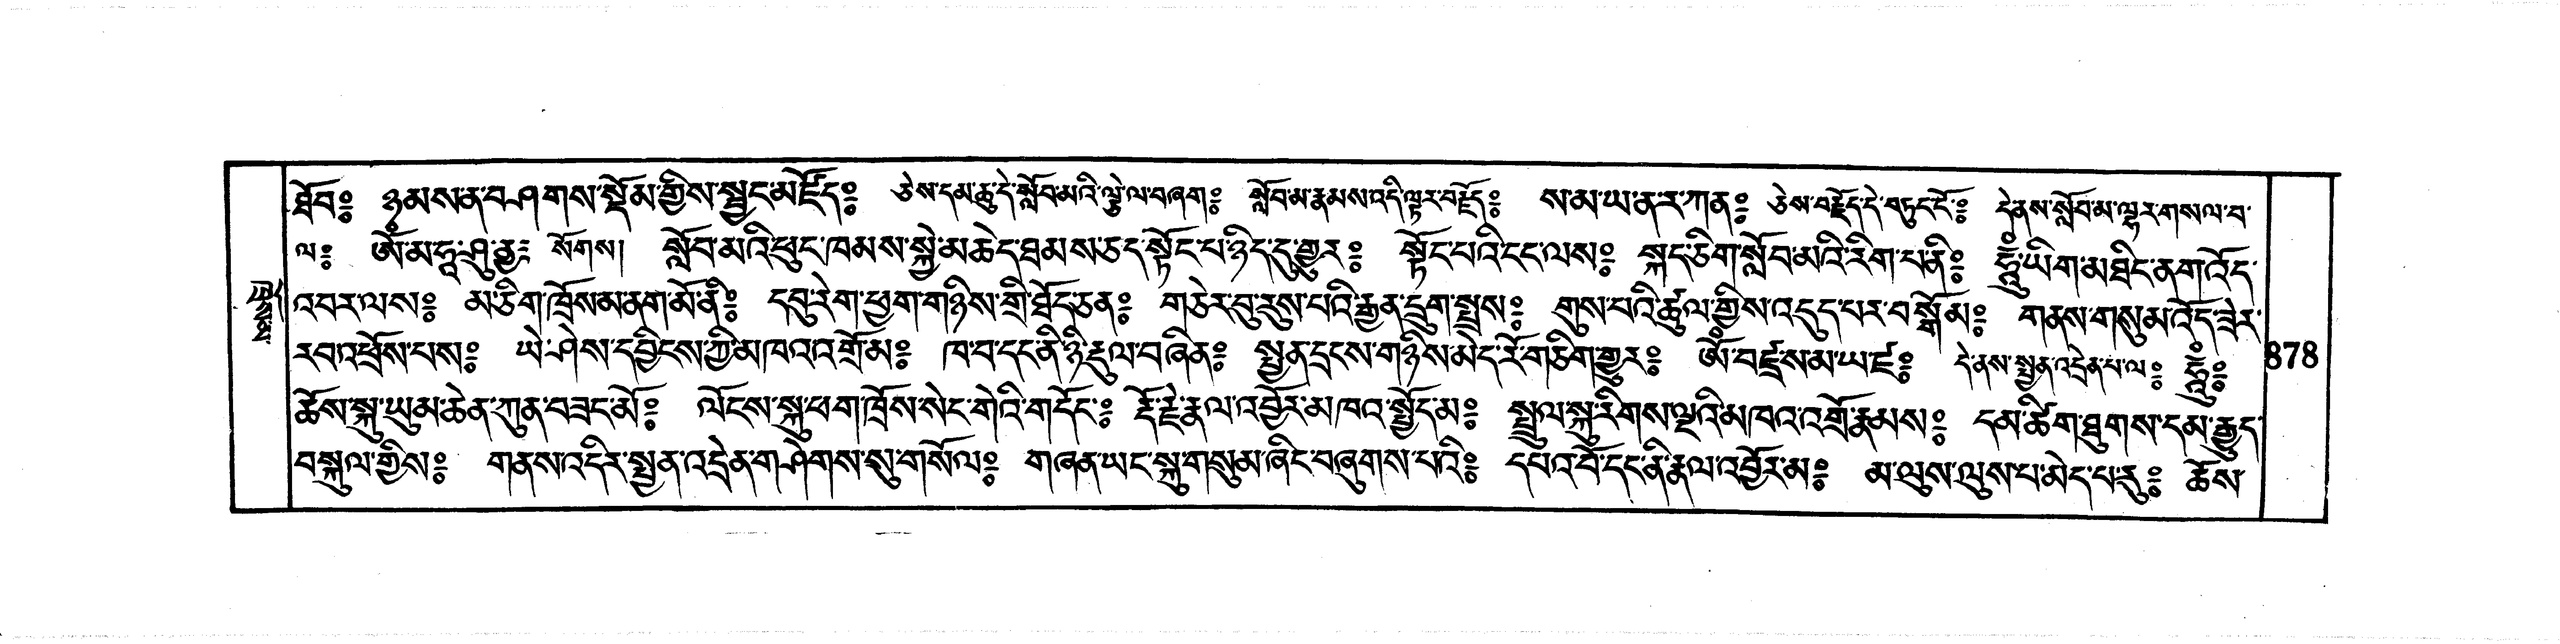 ཐེབ༔ ཉམས་ན་བཤགས་སྡོམ་གྱིས་སྦྱང་མཛོད༔ ཅེས་དམ་ཆུ་དེ་སློབ་མའི་ལྕེ་ལ་བཞག༔ སློབ་མ་རྣམས་འདི་ལྟར་བརྗོད༔ ས་མ་ཡ་ན་ར་ཀན༔ ཅེས་བརྗོད་དེ་བཏུང་ངོ༔ དེ་ནས་སློབ་མ་ལྷར་གསལ་བ་
ལ༔ ཨོཾ་མ་ཧཱ་ཤཱུ་ནྱ༔ སོགས། སློབ་མའི་ཕུང་ཁམས་སྐྱེ་མཆེད་ཐམས་ཅད་སྟོང་པ་ཉིད་དུ་གྱུར༔ སྟོང་པའི་ངང་ལས༔ སྐད་ཅིག་སློབ་མའི་རིག་པ་ནི༔ ཧཱུྃ་ཡིག་མཐིང་ནག་འོད་
འབར་ལས༔ མ་ཅིག་ཁྲོས་མ་ནག་མོ་ནི༔ དབུ་རེག་ཕྱག་གཉིས་གྲི་ཐོད་ཅན༔ གཅེར་བུ་རུས་པའི་རྒྱན་དྲུག་སྤྲས༔ གུས་པའི་ཚུལ་གྱིས་འདུད་པར་བསྒོམ༔ གནས་གསུམ་འོད་ཟེར་
རབ་འཕྲོས་པས༔ ཡེ་ཤེས་དབྱིངས་ཀྱི་མཁའ་འགྲོ་མ༔ ཁ་བ་དང་ནི་ཉི་རྡུལ་བཞིན༔ སྤྱན་དྲངས་གཉིས་མེད་རོ་གཅིག་གྱུར༔ ཨོཾ་བཛྲ་ས་མ་ཡ་ཛ༔ དེ་ནས་སྤྱན་འདྲེན་པ་ལ༔ ཧཱུྃ༔
878
ཆོས་སྐུ་ཡུམ་ཆེན་ཀུན་བཟང་མོ༔ ལོངས་སྐུ་ཕག་ཁྲོས་སེང་གེའི་གདོང༔ རྡོ་རྗེ་རྣལ་འབྱོར་མ་ཁའ་སྤྱོད་མ༔ སྤྲུལ་སྐུ་རིགས་ལྔའི་མཁའ་འགྲོ་རྣམས༔ དམ་ཚིག་ཐུགས་དམ་རྒྱུད་
བསྐུལ་གྱིས༔ གནས་འདིར་སྤྱན་འདྲེན་གཤེགས་སུ་གསོལ༔ གཞན་ཡང་སྐུ་གསུམ་ཞིང་བཞུགས་པའི༔ དཔའ་བོ་དང་ནི་རྣལ་འབྱོར་མ༔ མ་ལུས་ལུས་པ་མེད་པ་རུ༔ ཆོས་